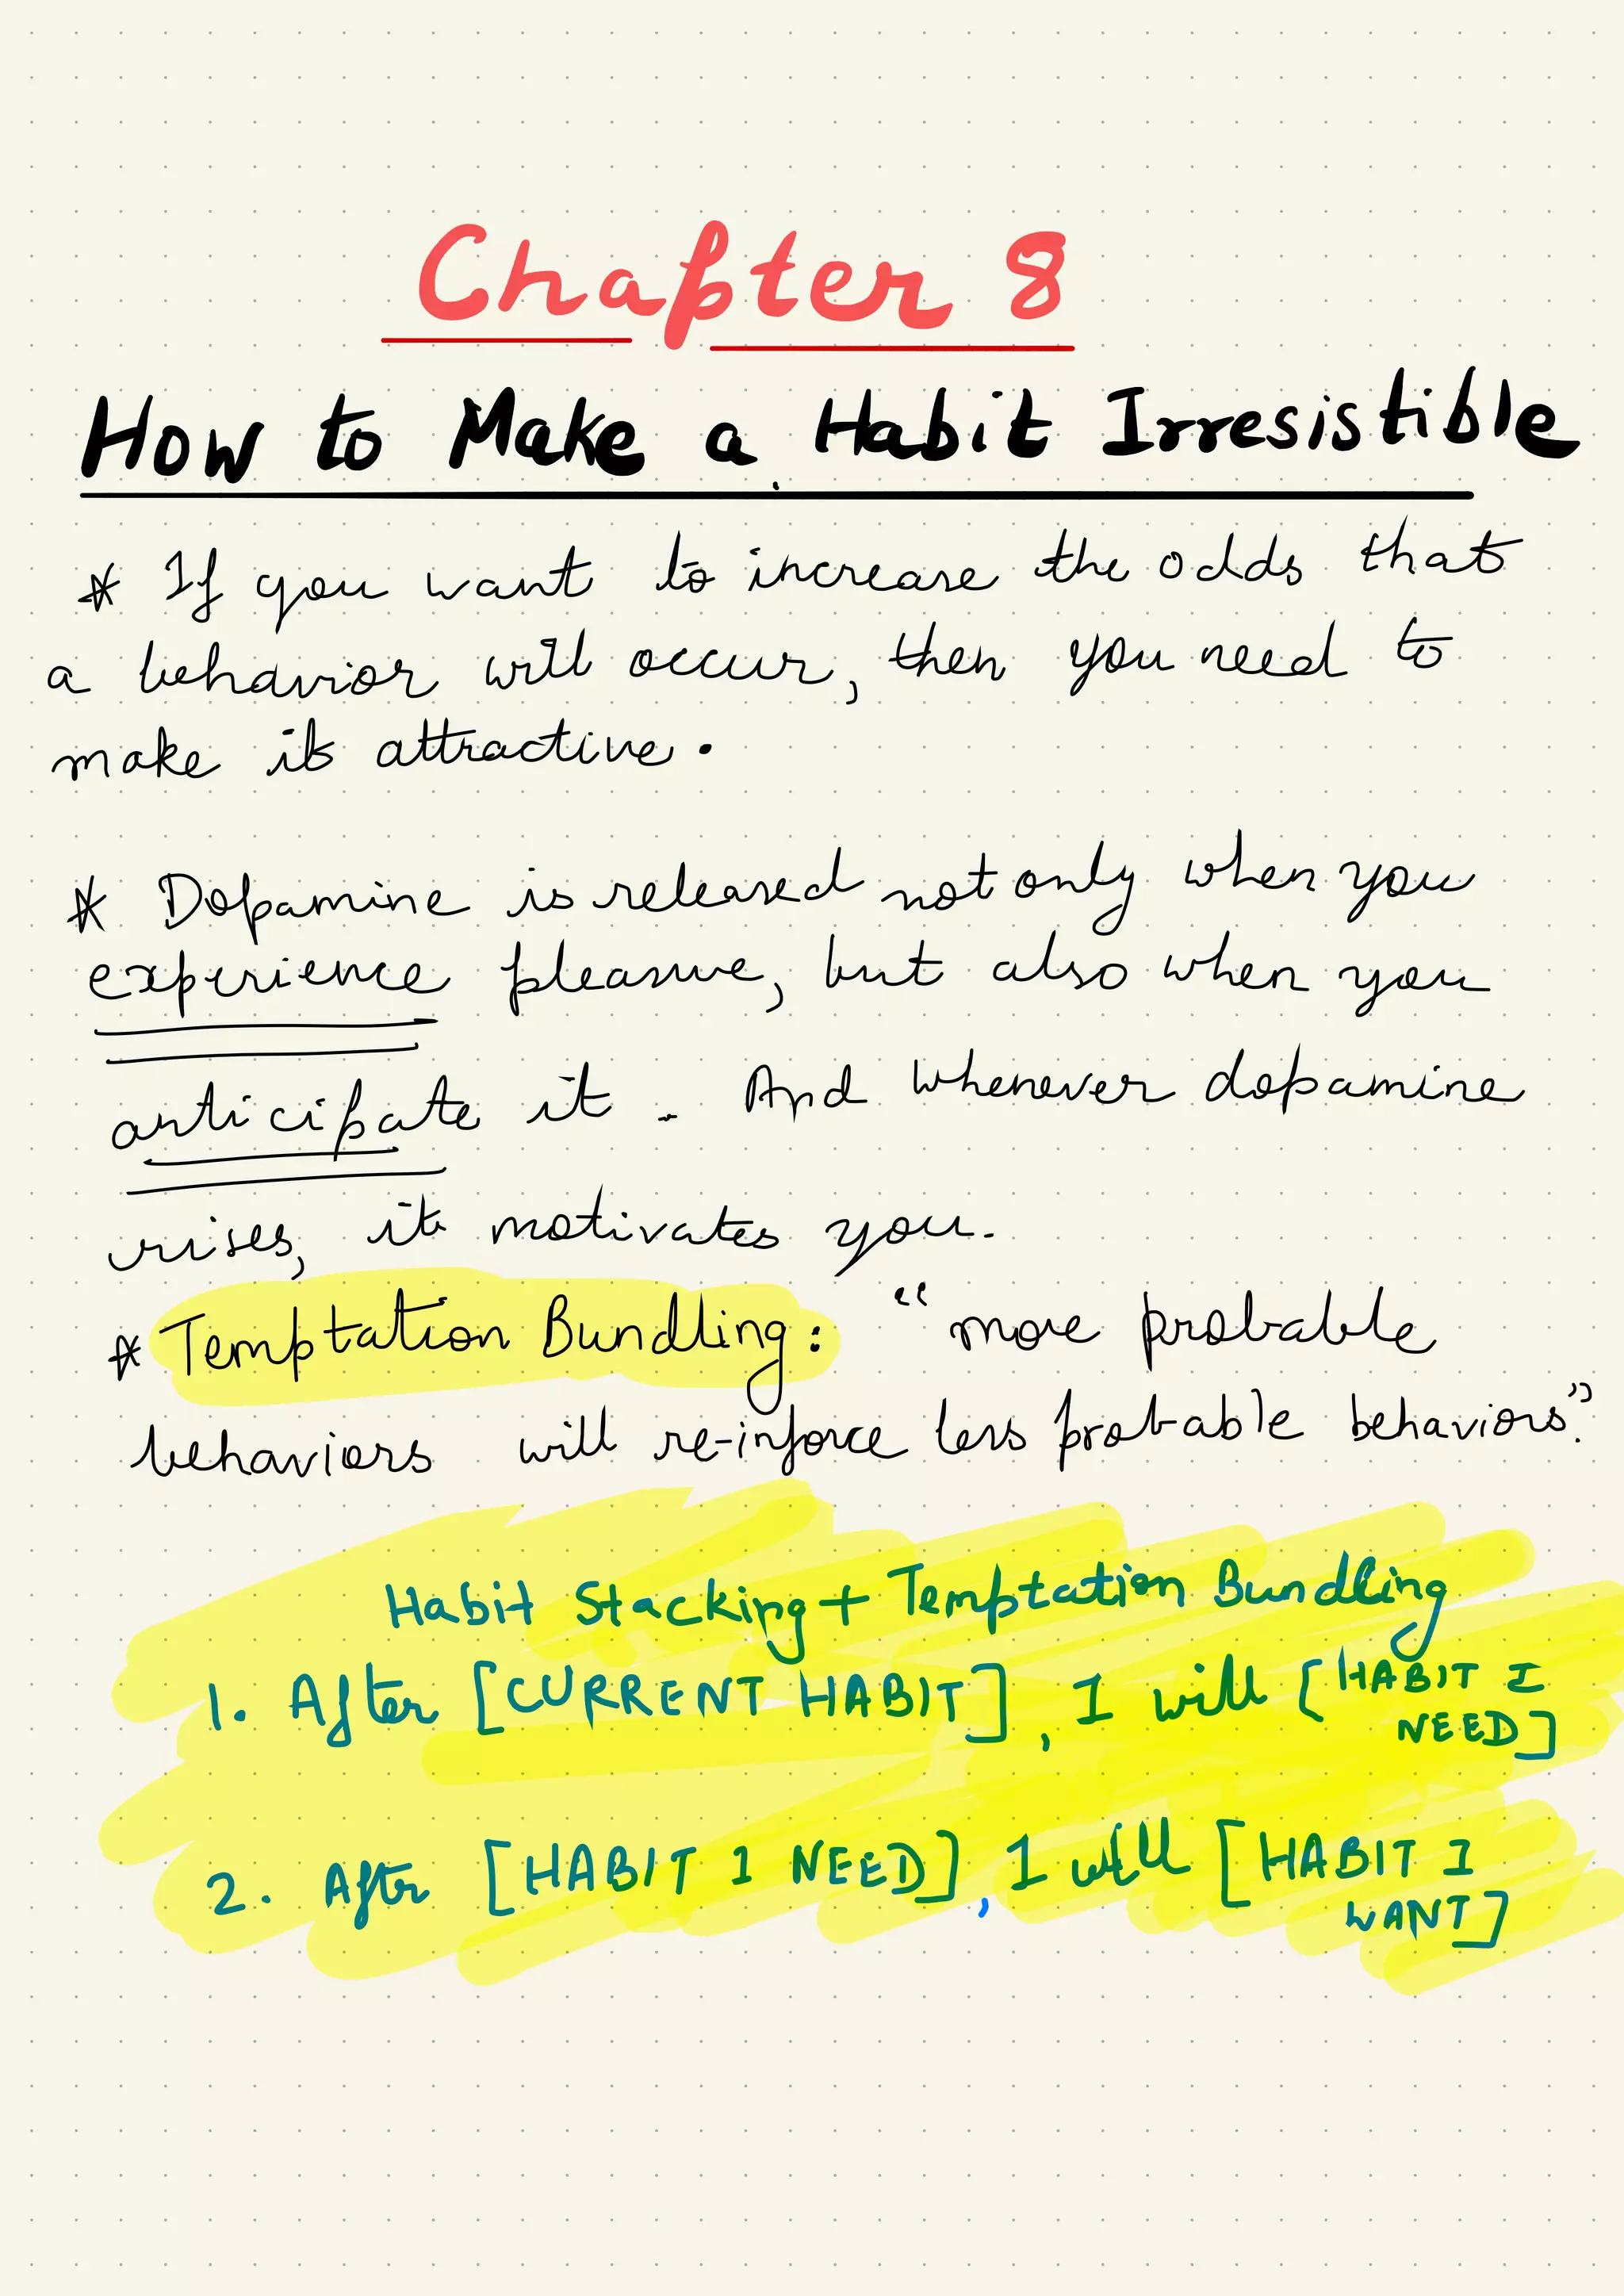 Chapter 8
How to Make a Habit Irresistible
* If you want to increase the odds that
a behavior will occur, then you need to
make it attractive.
* Dopamine is released not only when you
experience pleasure, but also when you
anticipate it. And whenever dopamine
rises, it motivates you.
* Temptation Bundling: "more probable
behaviors will re-inforce less probable behaviors."
Habit Stacking + Temptation Bundling
1. After [CURRENT HABIT], I will [HABIT I
NEED]
2. After [HABIT I NEED], I will [HABIT I
WANT]